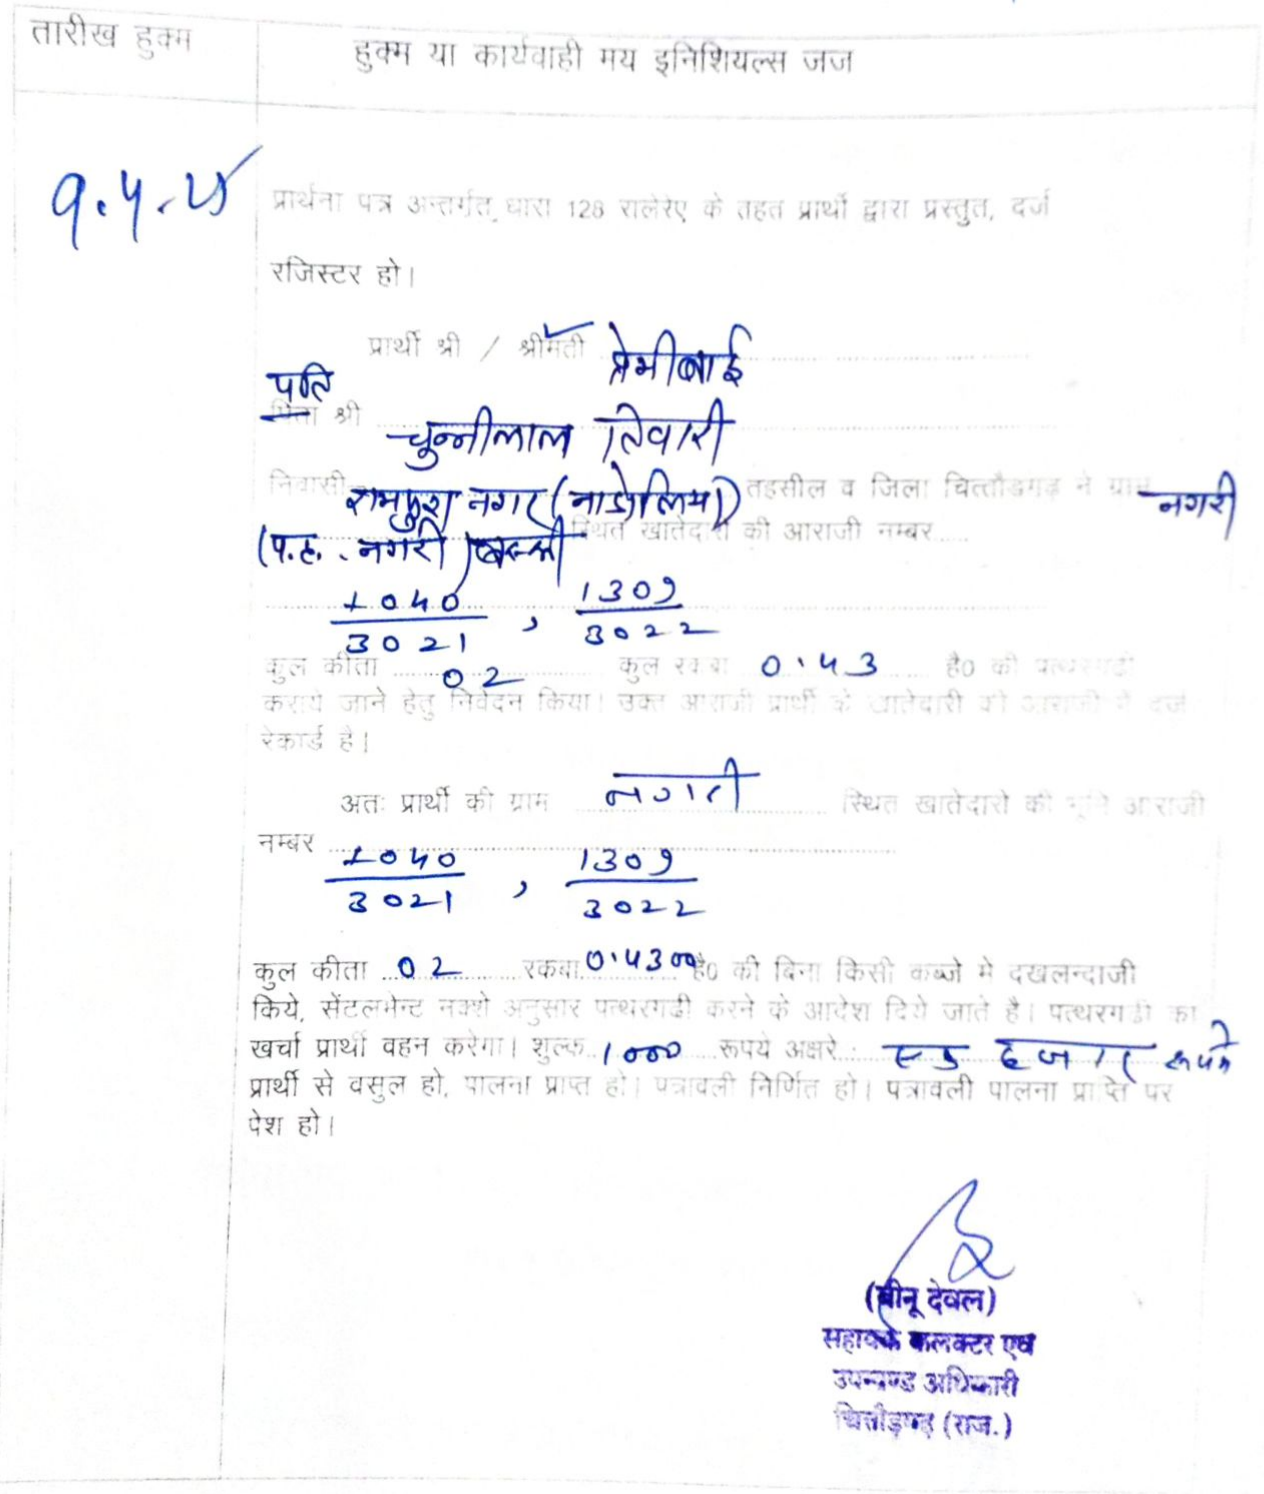 तारीख हुक्म
हुक्म या कार्यवाही मय इनिशियल्स जज
9.4.25
प्रार्थना पत्र अन्तर्गत धारा 128 रालेरेए के तहत प्रार्थी द्वारा प्रस्तुत, दर्ज
रजिस्टर हो।
प्रार्थी श्री / श्रीमती प्रेमीबाई
पति
पिता श्री चुन्नीलाल तिवारी
निवासी नगर तहसील व जिला चित्तौडगढ़ ने ग्राम नगरी
(प.ह. नगरी) स्थित खातेदारी की आराजी नम्बर.....
1040 , 1309
3021 3022
कुल कीता 02 कुल रकबा 0.43 है0 की पत्थरगढी
कराये जाने हेतु निवेदन किया। उक्त आराजी प्रार्थी के खातेदारी की आराजी में दर्ज
रेकार्ड है।
अतः प्रार्थी की ग्राम नगरी स्थित खातेदारी की भूमि आराजी
नम्बर
1040 , 1309
3021 3022
कुल कीता 02 रकबा 0.4300 है0 की बिना किसी कब्जे मे दखलन्दाजी
किये, सेंटलमेन्ट नक्शे अनुसार पत्थरगढी करने के आदेश दिये जाते है। पत्थरगढी का
खर्चा प्रार्थी वहन करेगा। शुल्क 1000 रूपये अक्षरे एक हजार रूपये
प्रार्थी से वसुल हो, पालना प्राप्त हो। पत्रावली निर्णित हो। पत्रावली पालना प्राप्ति पर
पेश हो।
(बीनू देवल)
सहायक कलक्टर एवं
उपखण्ड अधिकारी
चित्तौड़गढ़ (राज.)